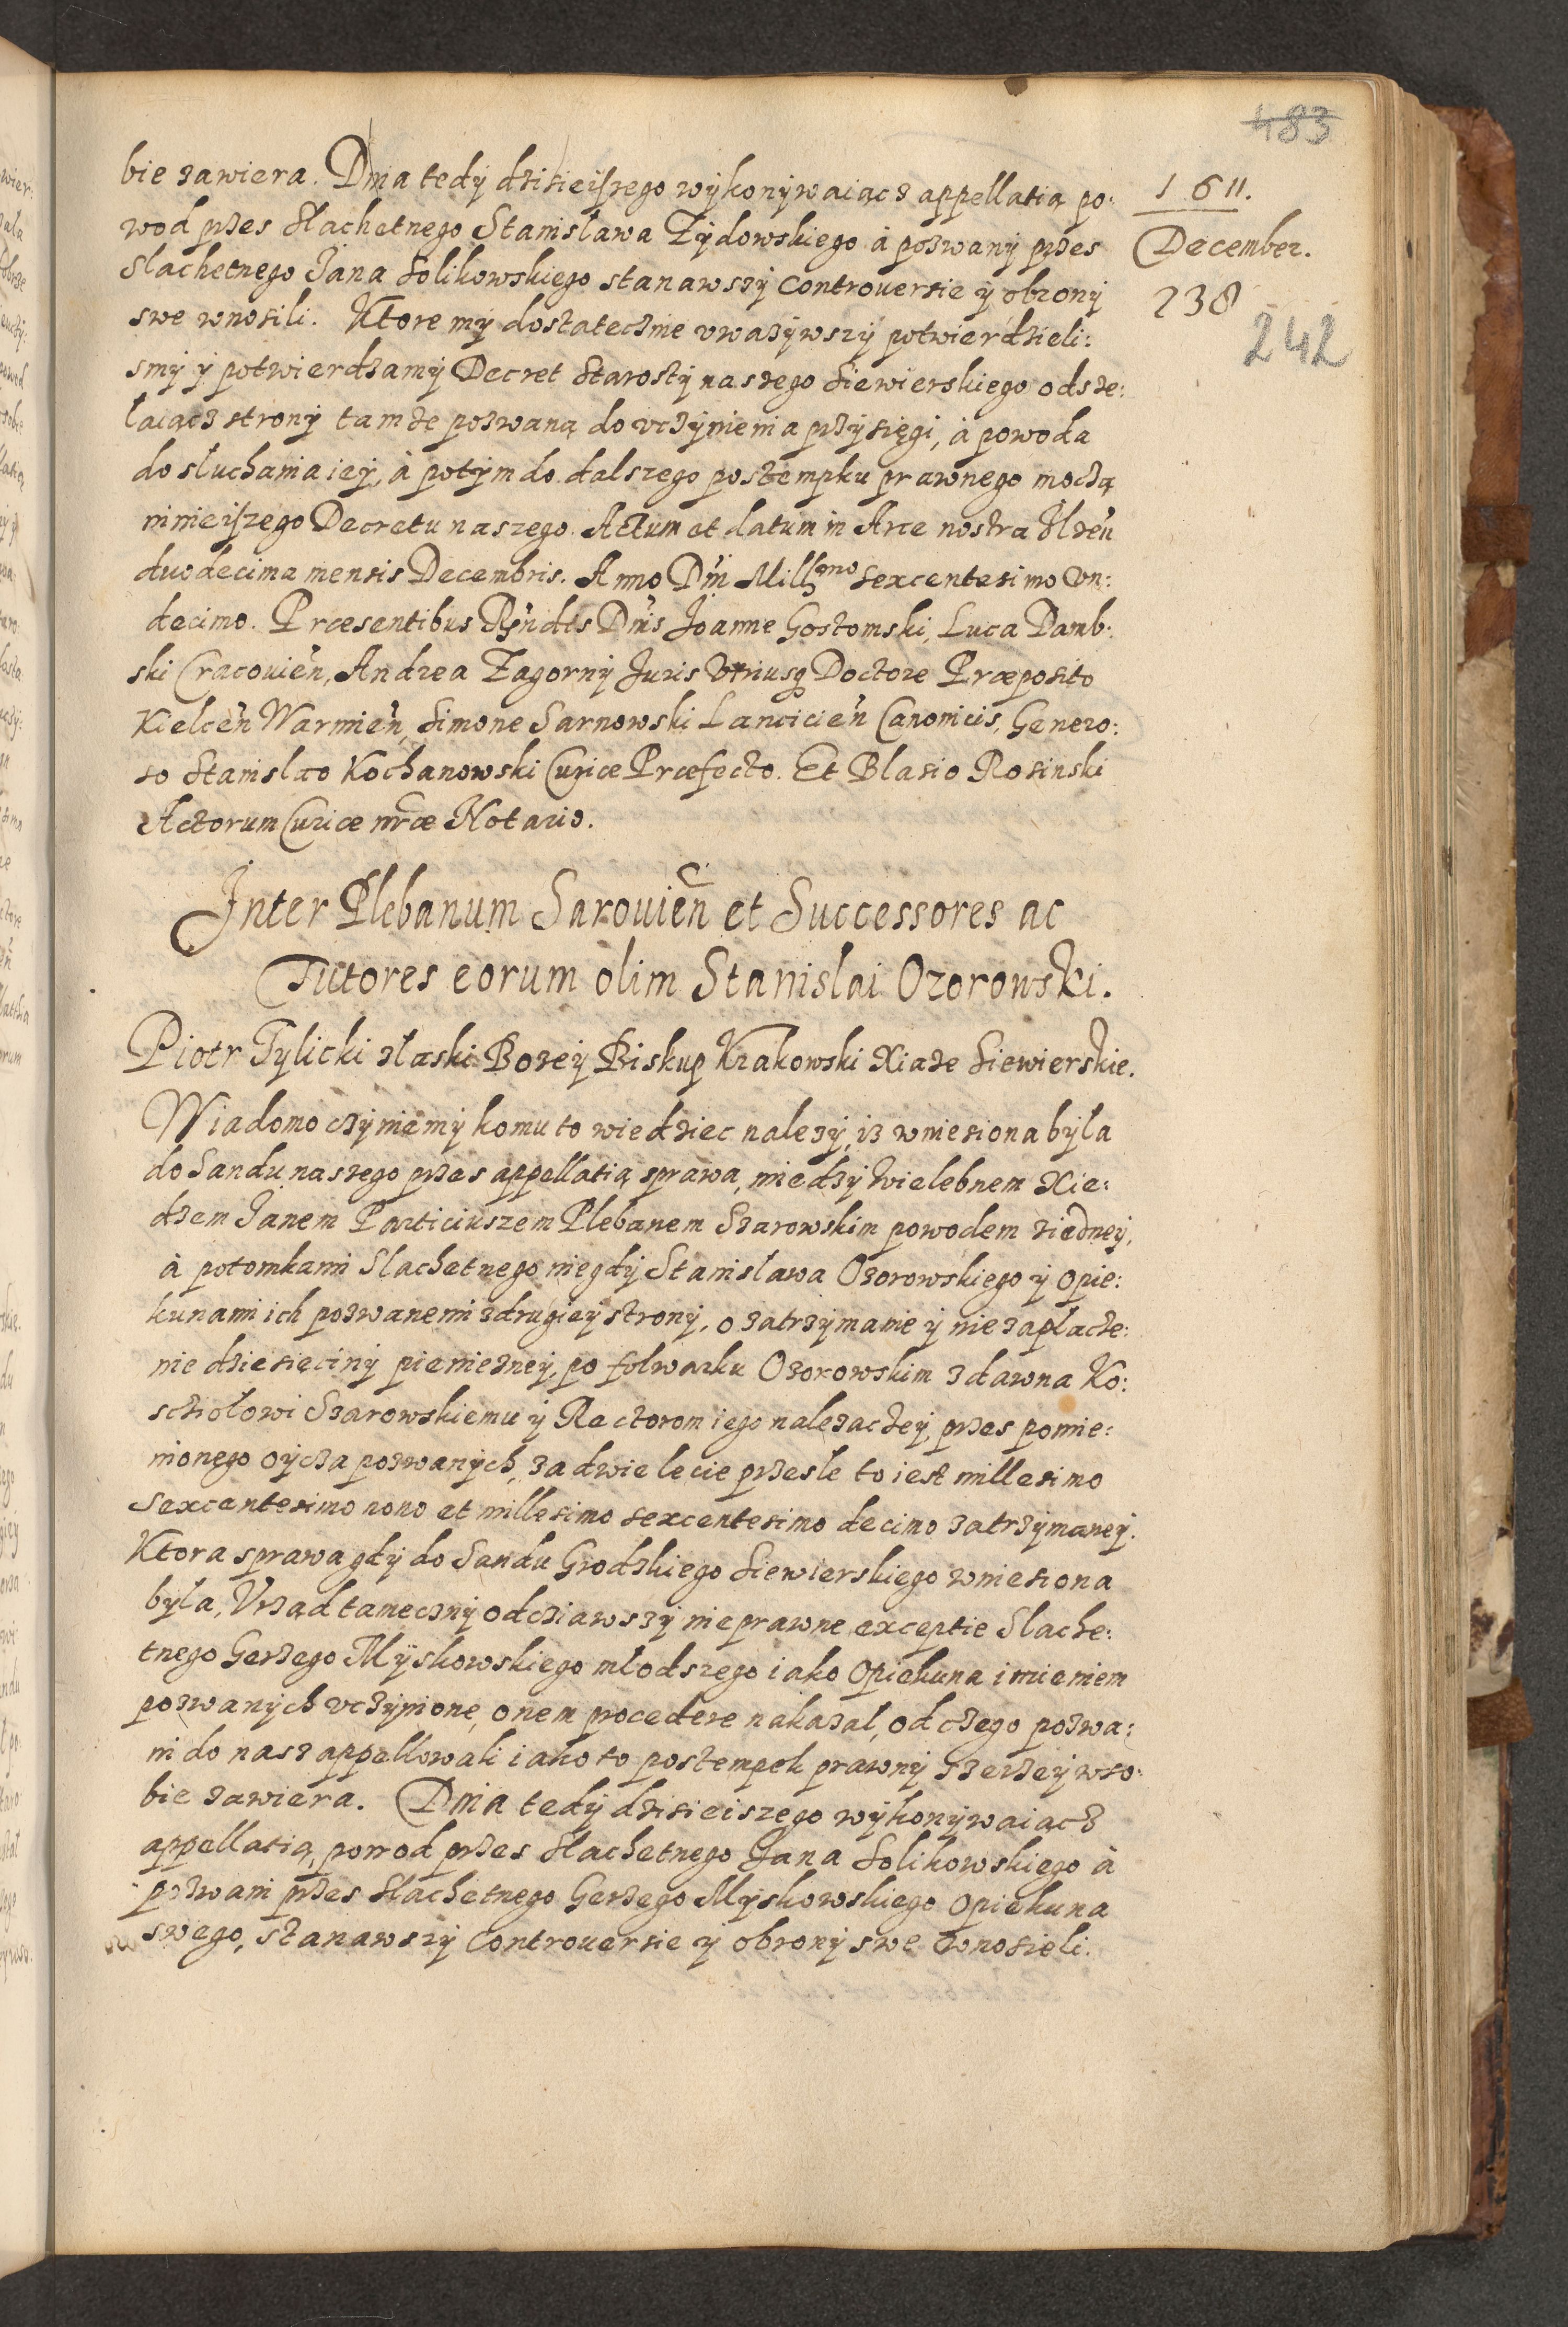 483
1611.
December.
238
242
bie zawiera. Dnia tedÿ dzisieiszego wÿkonÿwaiącz appellatią po:
wod przes Slachetnego Stanisława Zÿdowskiego à pozwanÿ przes
Slachetnego Jana Solikowskiego stanawszÿ controuersie ÿ obronÿ
swe wnosili. Ktore mÿ dostatecznie vwazÿwszÿ potwierdzieli:
smÿ ÿ potwierdzamÿ Decret Starostÿ naszego Siewierskiego odsze:
laiącz stronÿ tamze pozwaną do vczÿnienia przÿsięgi, à powoda
do sluchania ieÿ, à potÿm do dalszego postempku prawnego moczą
ninieiszego Decretu naszego. Actum et datum in Arce nostra Ilzeń
duodecima mensis Decembris. Anno Dni Millmo Sexcentesimo Vn:
decimo. Præsentibus Rndis Dnis Joanne Gostomski, Luca Damb:
ski Cracouień, Andrea Zagornÿ Juris Vtriusq Doctore Præposito
Kielceń Warmień, Simone Sarnowski Lancicień Canonicis, Genero:
so Stanislao Kochanowski Curiæ Præfecto. Et Blasio Rosinski
Actorum Curiæ nræ Notario.
Inter Plebanum Sarouień et Successores ac
Tutores eorum olim Stanislai Ozorowski.
Piotr Tylicki złaski Bozeÿ Biskup Krakowski Xiaze Siewierskie.
Wiadomo czÿniemÿ komu to wiedziec nalezÿ, iz wniesiona bÿla
do Sandu naszego przes appellatią sprawa, miedzÿ Wielebnem Xie:
dzem Janem Particiuszem Plebanem Szarowskim powodem ziedneÿ,
à potomkami Slachetnego niegdÿ Stanisława Ozorowskiego ÿ opie:
kunami ich pozwanemi zdrugieÿ stronÿ, o zatrzÿmanie ÿ niezaplacze:
nie dziesięcinÿ pienięzneÿ, po folwarku Ozorowskim zdawna Ko:
sciołowi Szarowskiemu ÿ Rectorom iego nalezaczeÿ, przes pomie:
nionego oÿcza pozwanÿch, za dwie lecie przesle to iest millesimo
Sexcentesimo nono et millesimo sexcentesimo decimo zatrzÿmaneÿ.
Ktora sprawa gdÿ do Sandu Grodzkiego Siewierskiego wniesiona
bÿla, Vrząd tamecznÿ odciawszÿ nieprawne exceptie Slache:
tnego Gerzego Mÿskowskiego młodszego iako Opiekuna imieniem
pozwanÿch vczÿnione, onem procedere nakazal, od czego pozwa:
ni do nasz appellowali iako to postempek prawnÿ szerzeÿ wso:
bie zawiera. Dnia tedÿ dzisieiszego wÿkonÿwaiącz
appellatią, powod przes Slachetnego Jana Solikowskiego à
pozwani przes Slachetnego Gerzego Mÿskowskiego Opiekuna
swego, stanawszÿ controuersie ÿ obronÿ swe wnosieli.